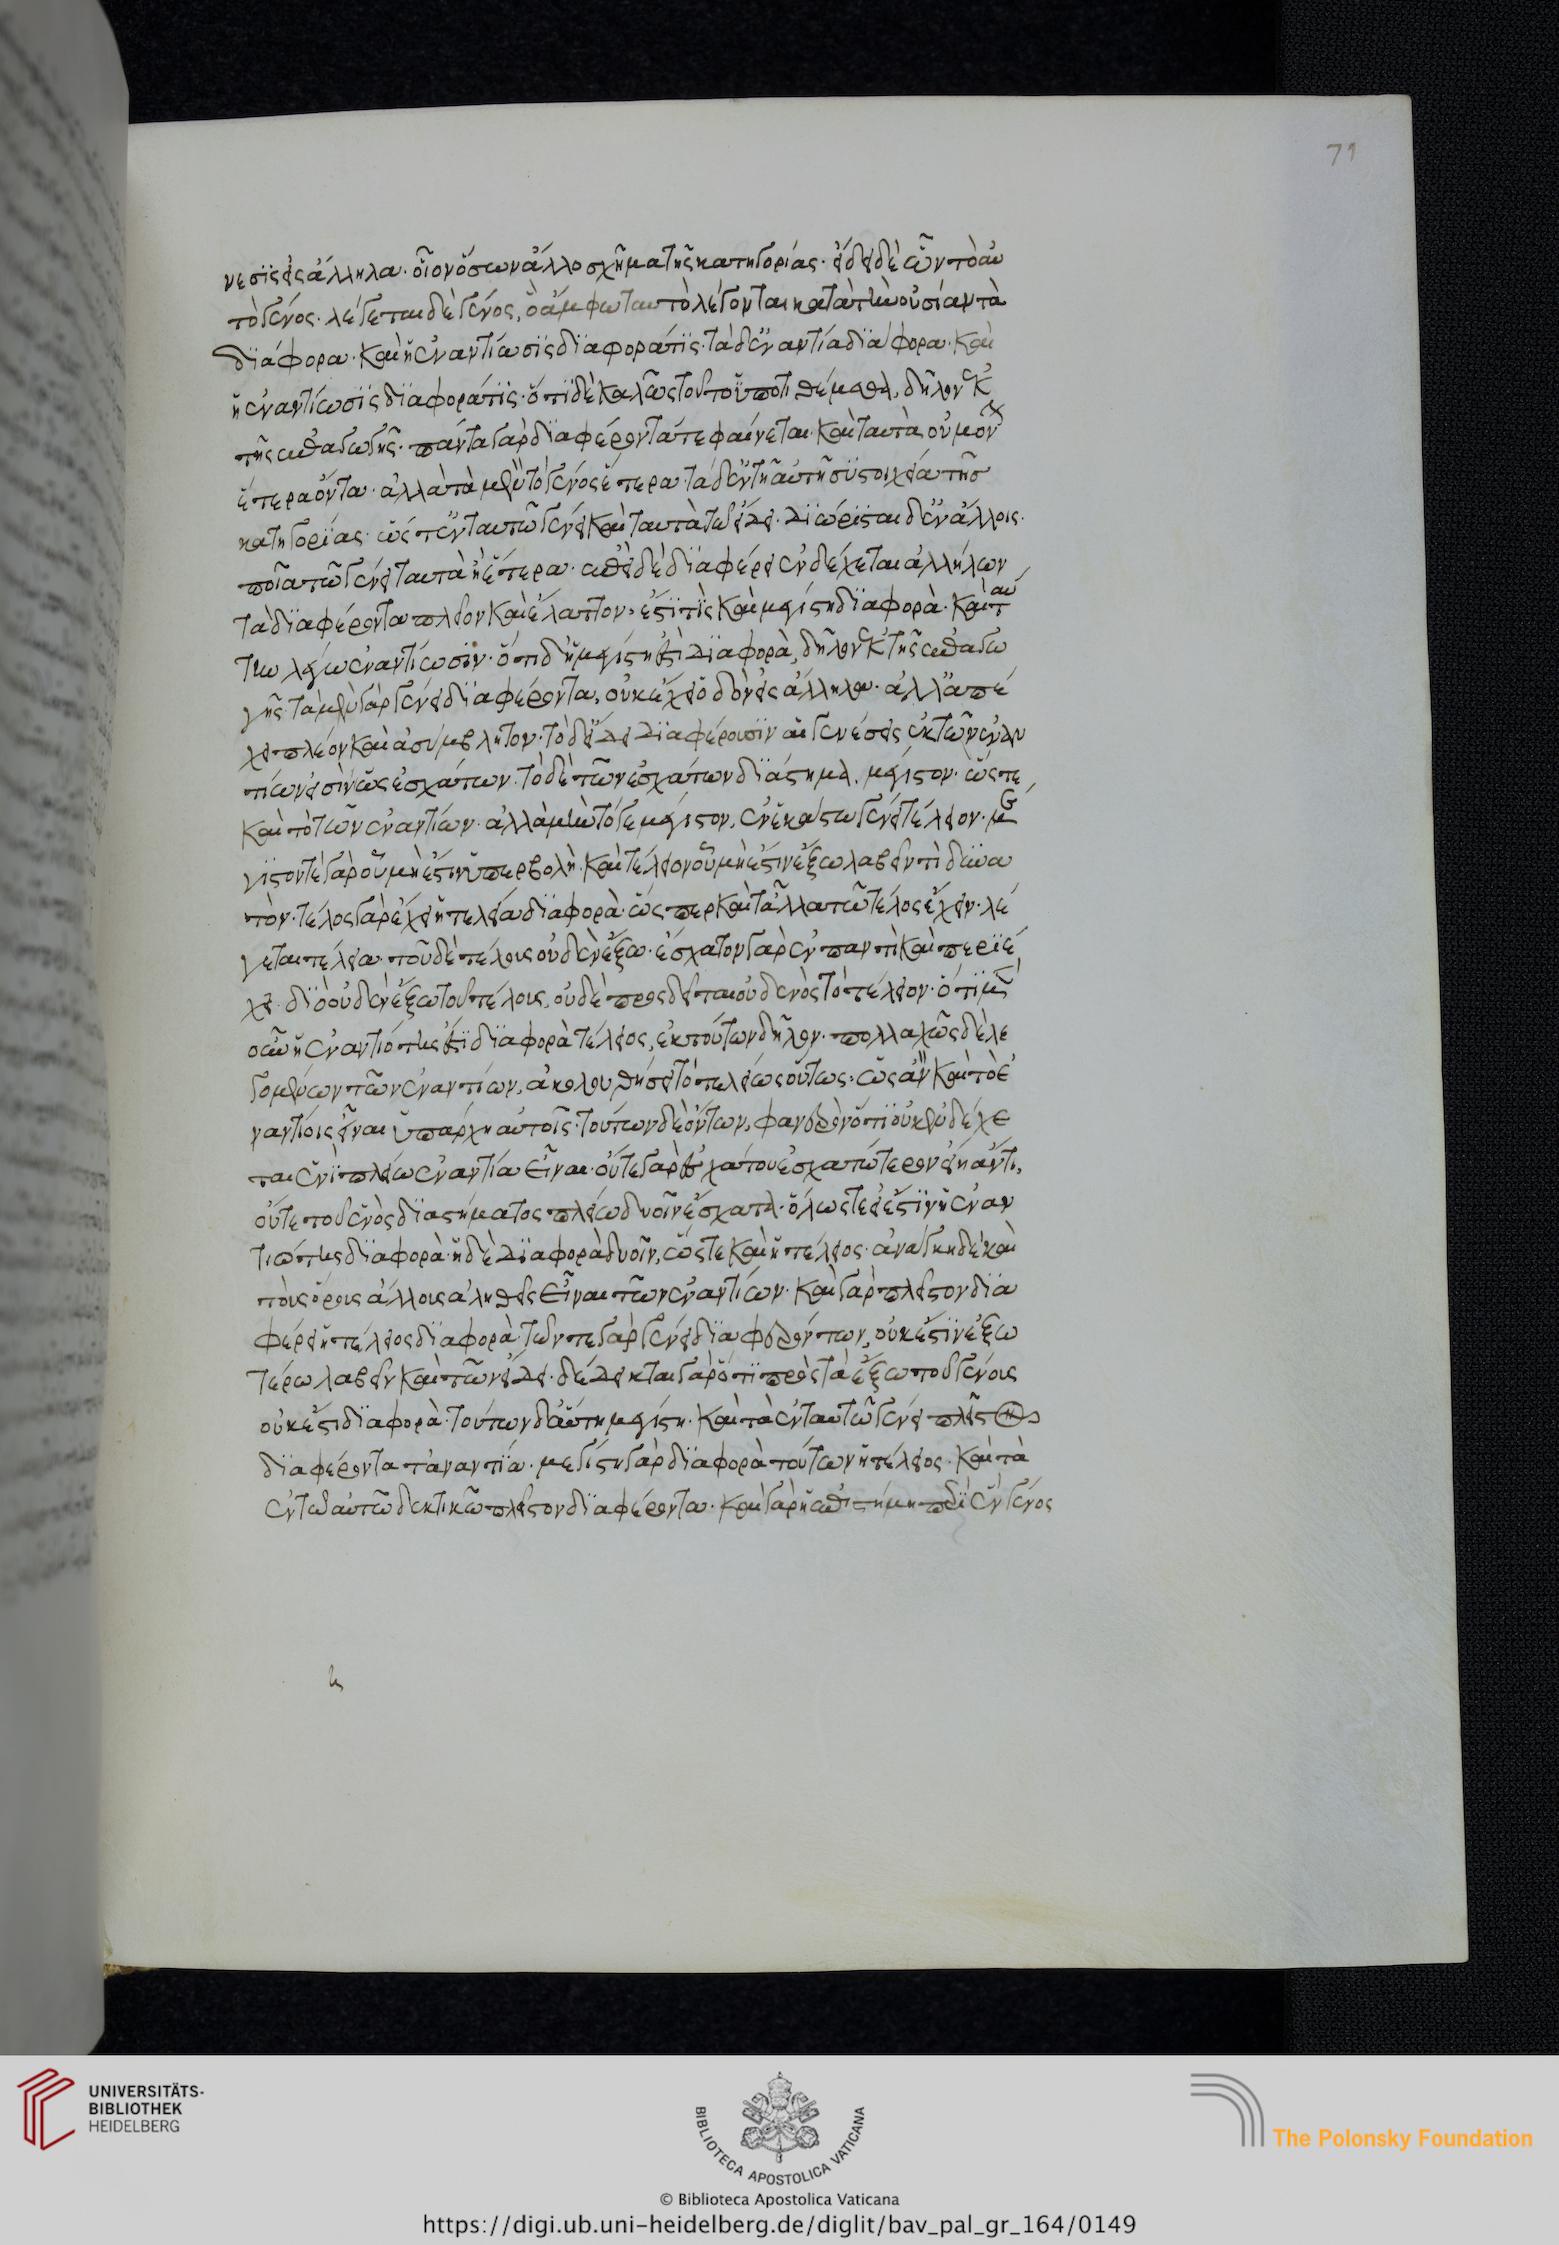 71
νεσις εἰς ἄλληλα· οἷον ὅσων ἄλλο σχῆμα τῆς κατηγορίας· εἴδει δὲ ὧν τὸ αὐ
τὸ γένος· λέγεται δὲ γένος, ὃ ἄμφω ταυτὸ λέγονται κατὰ τὴν οὐσίαν τὰ
διάφορα· καὶ ἡ ἐναντίωσις διαφορά τις· τὰ δ' ἐναντία διάφορα· καὶ
ἡ ἐναντίωσις διαφορά τις· ὅτι δὲ καλῶς τοῦτο ὑποτιθέμεθα, δῆλον ἐκ
τῆς ἐπαγωγῆς· πάντα γὰρ διαφέροντά τε φαίνεται καὶ ταυτὰ οὐ μόνον
ἕτερα ὄντα· ἀλλὰ τὰ μὲν τὸ γένος ἕτερα· τὰ δ' ἐν τῇ αὐτῇ συστοιχεία τῆς
κατηγορίας· ὥστ' ἐν ταυτῷ γένει καὶ ταυτὰ τῷ εἴδει· διώρισται δ' ἐν ἄλλοις·
ποῖα τῷ γένει ταυτὰ ἢ ἕτερα· ἐπεὶ δὲ διαφέρειν ἐνδέχεται ἀλλήλων
τὰ διαφέροντα πλεῖον καὶ ἔλαττον, ἔστι τις καὶ μεγίστη διαφορὰ· καὶ ταύ
την λέγω ἐναντίωσιν· ὅτι δ' ἡ μεγίστη ἐστὶ διαφορὰ, δῆλον ἐκ τῆς ἐπαγω
γῆς· τὰ μὲν γὰρ γένει διαφέροντα, οὐκ ἔχει ὁδὸν εἰς ἄλληλα· ἀλλ' ἀπέ
χει πλέον καὶ ἀσύμβλητον· τὸ δ' εἴδει διαφέρουσιν αἱ γενέσεις ἐκ τῶν ἐναν
τίων εἰσὶν ὡς ἐσχάτων· τὸ δὲ τῶν ἐσχάτων διάστημα, μέγιστον· ὥστε
καὶ τὸ τῶν ἐναντίων· ἀλλὰ μὴν τό γε μέγιστον, ἐν ἑκάστω γένει τέλειον· μέ
γιστόν τε γὰρ οὗ μὴ ἔστιν ὑπερβολὴ· καὶ τέλειον οὗ μὴ ἔστιν ἔξω λαβεῖν τὶ δυνα
τὸν· τέλος γὰρ ἔχει ἡ τελεία διαφορὰ· ὥσπερ καὶ τἆλλα τῷ τέλος ἔχειν· λέ
γεται τέλεια· τοῦ δὲ τέλους οὐδὲν ἔξω· ἔσχατον γὰρ ἐν παντὶ καὶ περιέ
χει· διὸ οὐδὲν ἔξω τοῦ τέλους, οὐδὲ προσδεῖται οὐδενὸς τὸ τέλειον· ὅτι μὲν
οὖν ἡ ἐναντιότης ἐστὶ διαφορὰ τέλειος, ἐκ τούτων δῆλον· πολλαχῶς δὲ λε
γομένων τῶν ἐναντίων, ἀκολουθήσει τὸ τελείως οὕτως· ὡς ἂν καὶ τὸ ἐ
ναντίοις εἶναι ὑπάρχη αὐτοῖς· τούτων δὲ ὄντων, φανερὸν ὅτι οὐκ ἐνδέχε
ται ἑνὶ πλείω ἐναντία εἶναι· οὔτε γὰρ ἐσχάτου ἐσχατώτερον εἴη ἄν τι,
οὔτε τοῦ ἑνὸς διαστήματος πλείω δυοῖν ἔσχατα· ὅλως τε εἰ ἔστιν ἡ ἐναν
τιότης διαφορὰ· ἡ δὲ διαφορὰ δυοῖν, ὥστε καὶ ἡ τέλειος· ἀνάγκη δὲ καὶ
τοὺς ὅρους ἄλλους ἀληθεῖς εἶναι τῶν ἐναντίων· καὶ γὰρ πλεῖστον δια
φέρει ἡ τέλειος διαφορὰ· τῶν τε γὰρ γένει διαφερόντων, οὐκ ἔστιν ἐξω
τέρω λαβεῖν καὶ τῶν εἴδει· δέδεικται γὰρ ὅτι πρὸς τὰ ἔξω τοῦ γένους
οὐκ ἔστι διαφορὰ· τούτων δ' αὕτη μεγίστη· καὶ τὰ ἐν ταυτῷ γένει πλεῖστον
διαφέροντα τἀναντία· μεγίστη γὰρ διαφορὰ τούτων ἡ τέλειος· καὶ τὰ
ἐν τῷ αὐτῷ δεκτικῷ πλεῖστον διαφέροντα· καὶ γὰρ ἡ ἐπιστήμη περὶ ἓν γένος
UNIVERSITÄTS-
BIBLIOTHEK
HEIDELBERG
BIBLIOTECA APOSTOLICA VATICANA
The Polonsky Foundation
© Biblioteca Apostolica Vaticana
https://digi.ub.uni-heidelberg.de/diglit/bav_pal_gr_164/0149